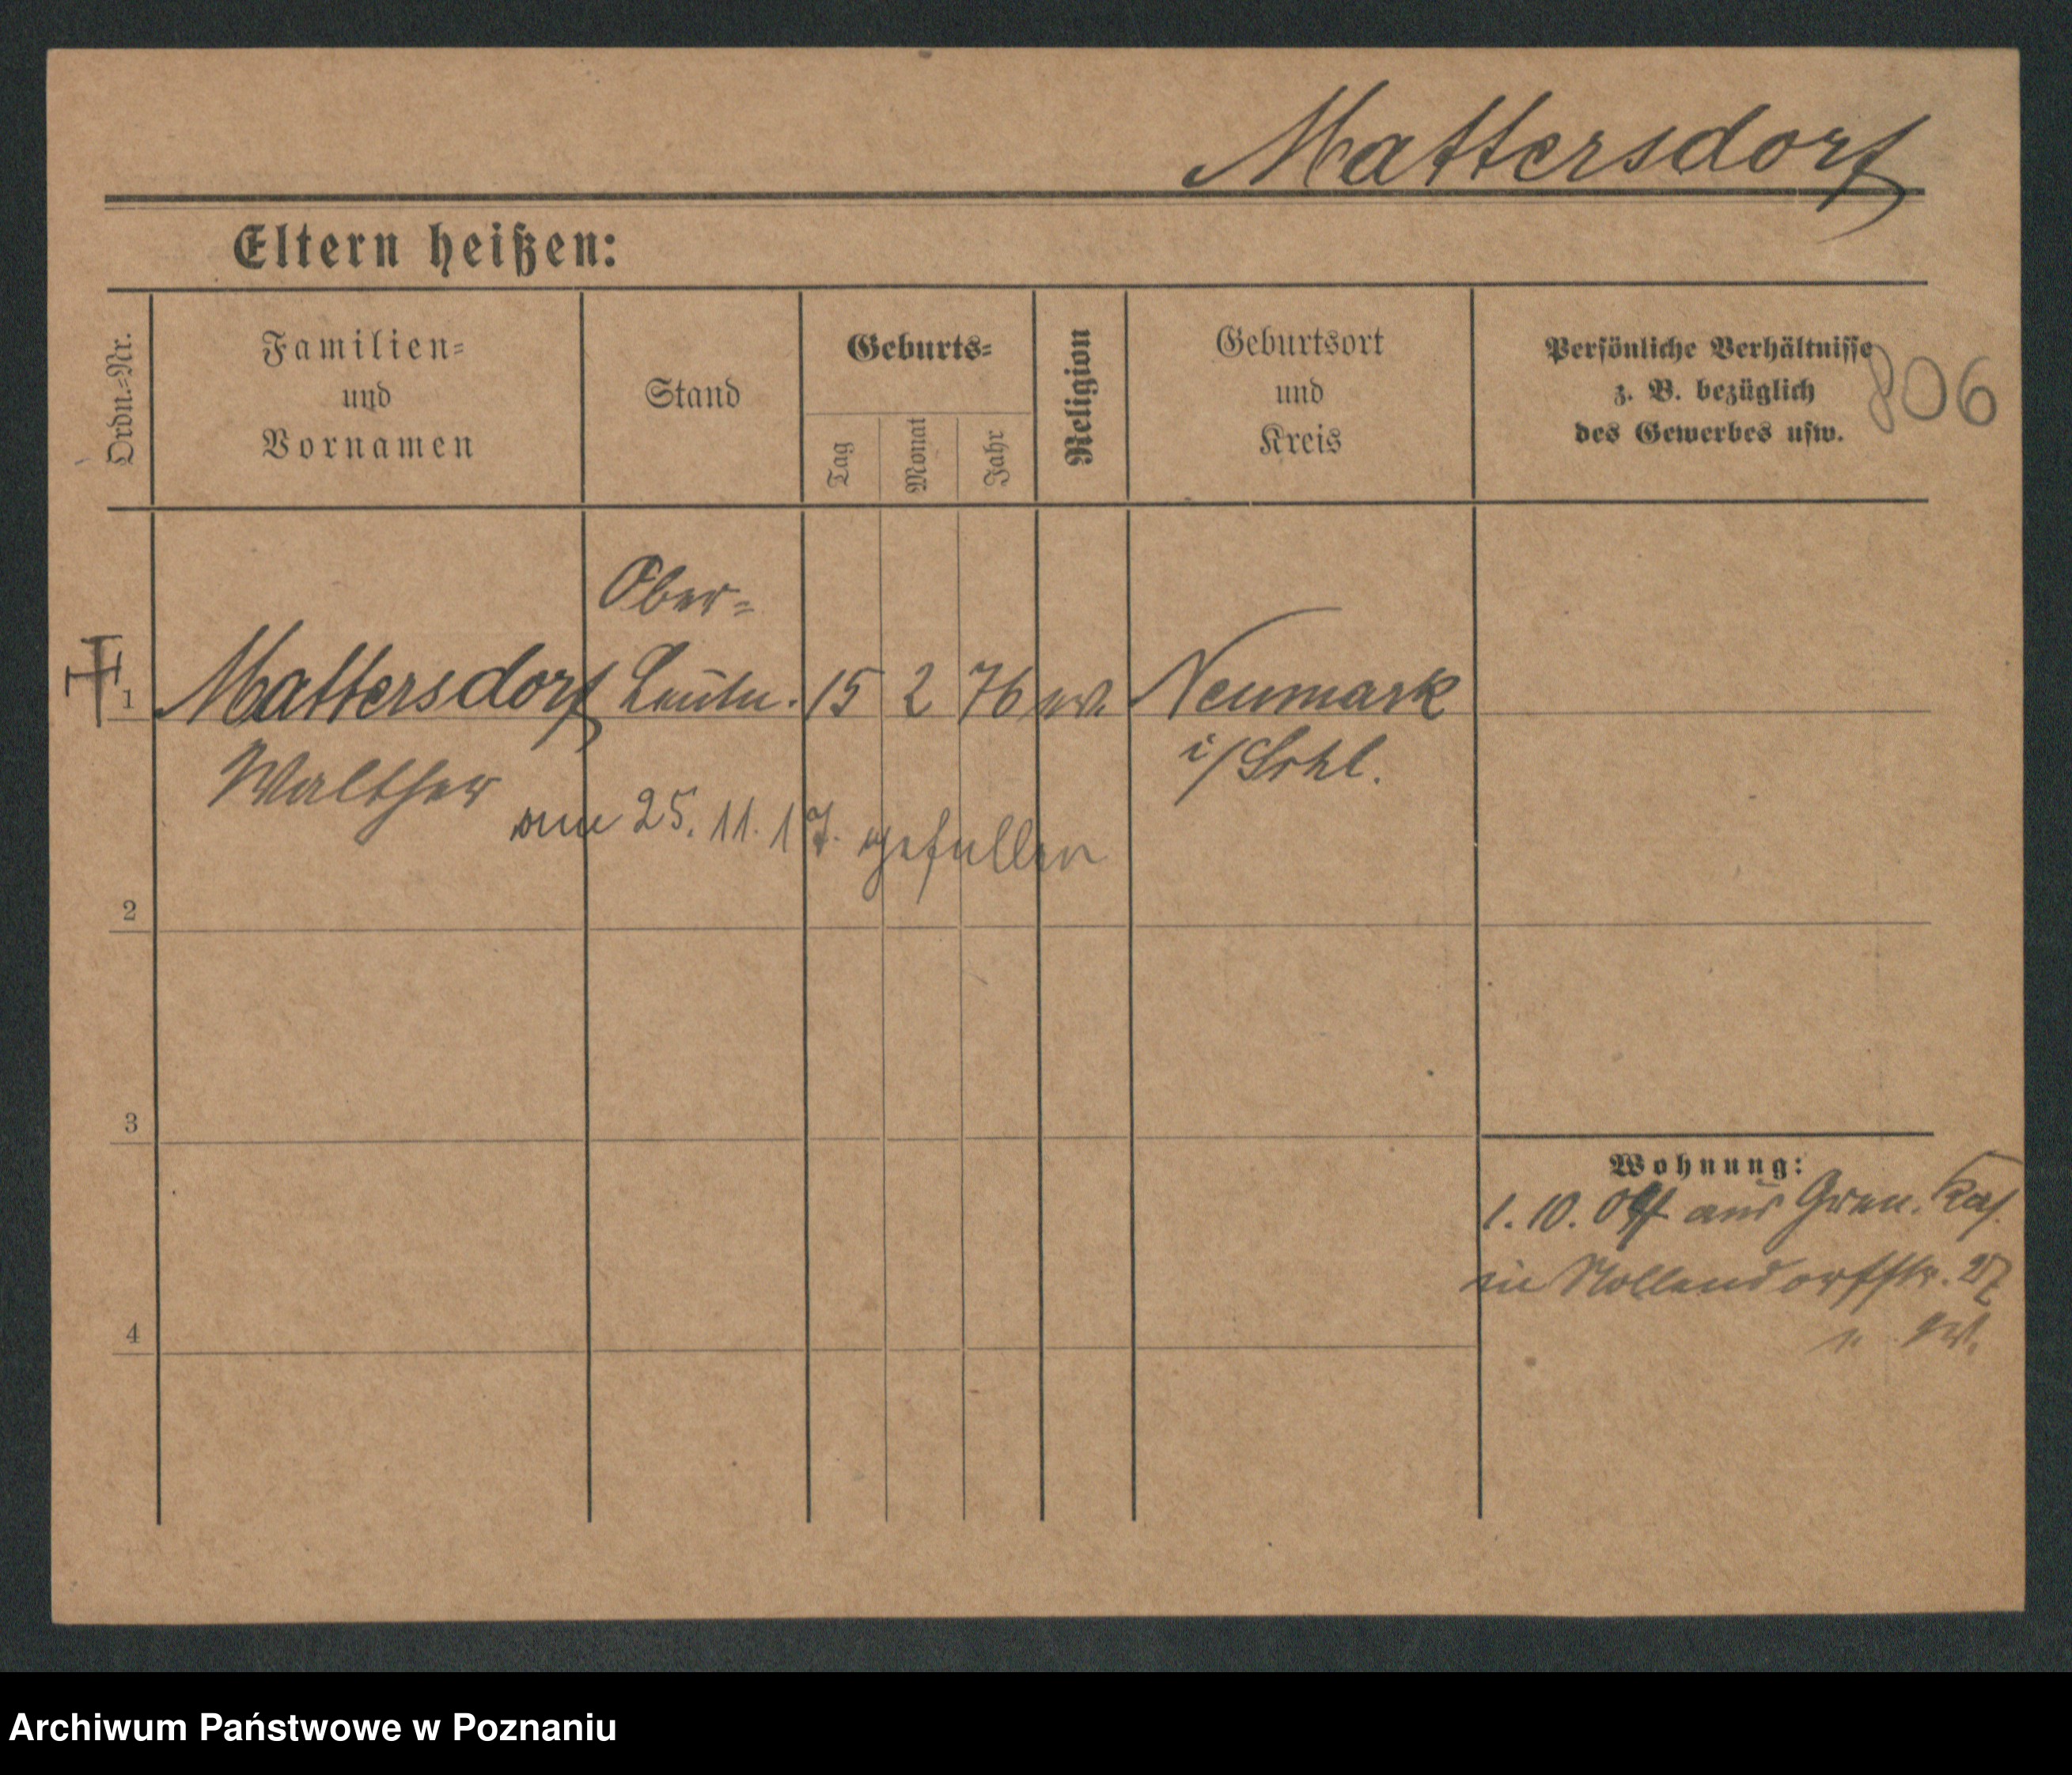 Mattersdorf
Eltern heißen:
Ordn.=Nr.
Familien=
und
Vornamen
Stand
Geburts=
Tag
Monat
Jahr
Religion
Geburtsort
und
Kreis
Persönliche Verhältnisse
z. B. bezüglich
des Gewerbes usw.
806
Ober=
1 Mattersdorf Leutn. 15 2 76 ev. Neumark
Walther
i/Schl.
am 25. 11. 17. gefallen
2
3
4
Wohnung:
1. 10. aus Gren. Kas.
in Nollendorfstr. 27
Archiwum Państwowe w Poznaniu